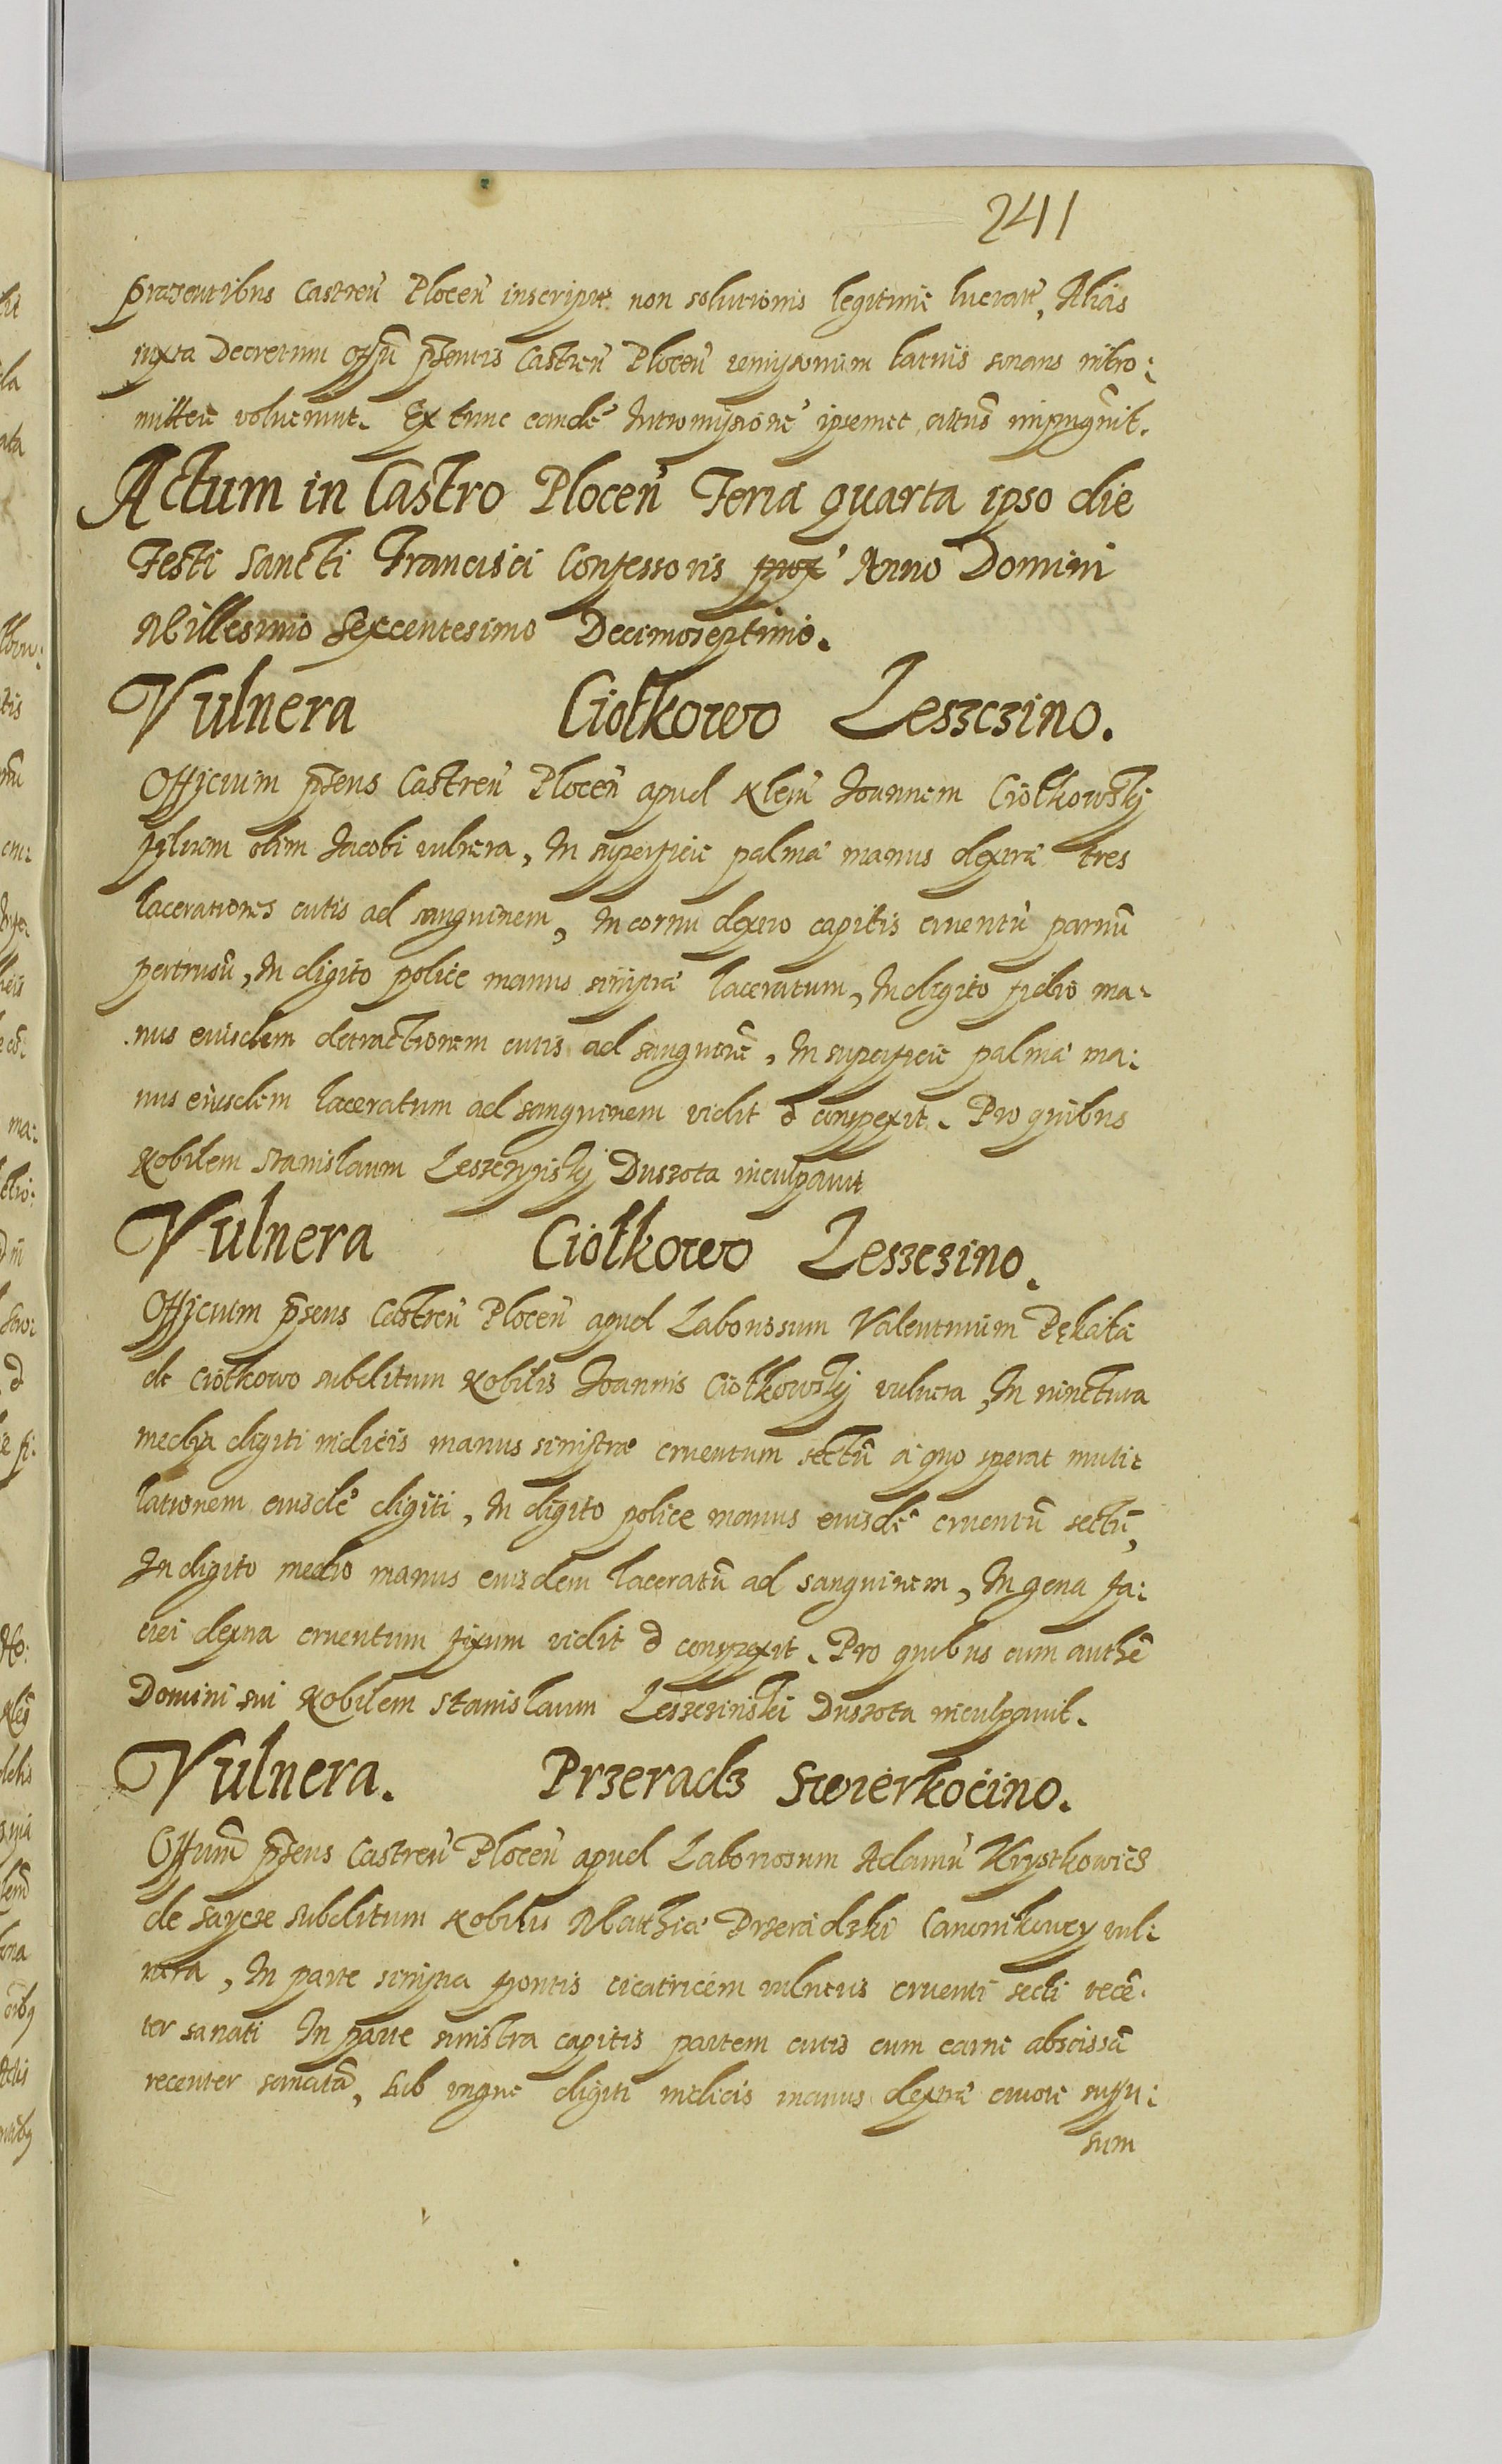 241
præsentibus Castreñ Plocen̄ inscript. non solutionis legitimè lucrare, Alias
iuxta Decretum offũ p̃sentis Castreñ Plocen̄ remissionum latius sonans intro:
mittere voluerunt. Ex tunc eandē Intromissionē ipsemet actus impugnit.
Actum in Castro Plocen̄ Feria quarta ipso die
Festi Sancti Francisci Confessoris Anno Domini
Millesimo Sexcentesimo Decimoseptimo.
Vulnera Ciołkowo Leszczino.
Officium p̃sens Castreñ Plocen̄ apud Nlem̄ Joannem Ciołkowskj
filium olim Jacobi vulnera, In superficie palmæ manus dextræ tres
lacerationes cutis ad sanguinem, In cornu dextro capitis cruentũ parvũ
pertusũ, In digito police manus sinistræ laceratum, In digito medio ma:
nus eiusdem detractionem cutis ad sanguinē, In superficie palmæ ma:
nus eiusdem laceratum ad sanguinem vidit & conspexit. Pro quibus
Nobilem Stanislaum Leszczynskj Duszota inculpavit
Vulnera Ciołkowo Leszczino.
Officium p̃sens Castreñ Plocen̄ apud Laboriosum Valentinum Pękata
de Ciołkowo subditum Nobilis Joannis Ciołkowskj vulnera, In iunctura
media digiti indicis manus sinistræ cruentum sectũ a quo sperat muti:
lationem eiusdē digiti, In digito police manus eiusdē cruentũ sectũ,
In digito medio manus eiusdem laceratũ ad sanguinem, In gena fa:
ciei dextra cruentum fixum vidit & conspexit. Pro quibus cum authẽ
Domini sui Nobilem Stanislaum Leszczinski Duszota inculpavit.
Vulnera. Przeradz Swierkocino.
Offium̃ p̃sens Castreñ Plocen̄ apud Laboriosum Adamũ Krystkowicz
de Saycze subditum Nobilis Matthiæ Przeradzki Canonikowey vul:
nera, In parte sinistra frontis cicatricem vulneris cruenti secti recẽ:
ter sanati In parte sinistra capitis partem cutis cum carne abscissã
recenter sanatã, Sub ungue digiti indicis manus dextræ cruore suffu:
sum